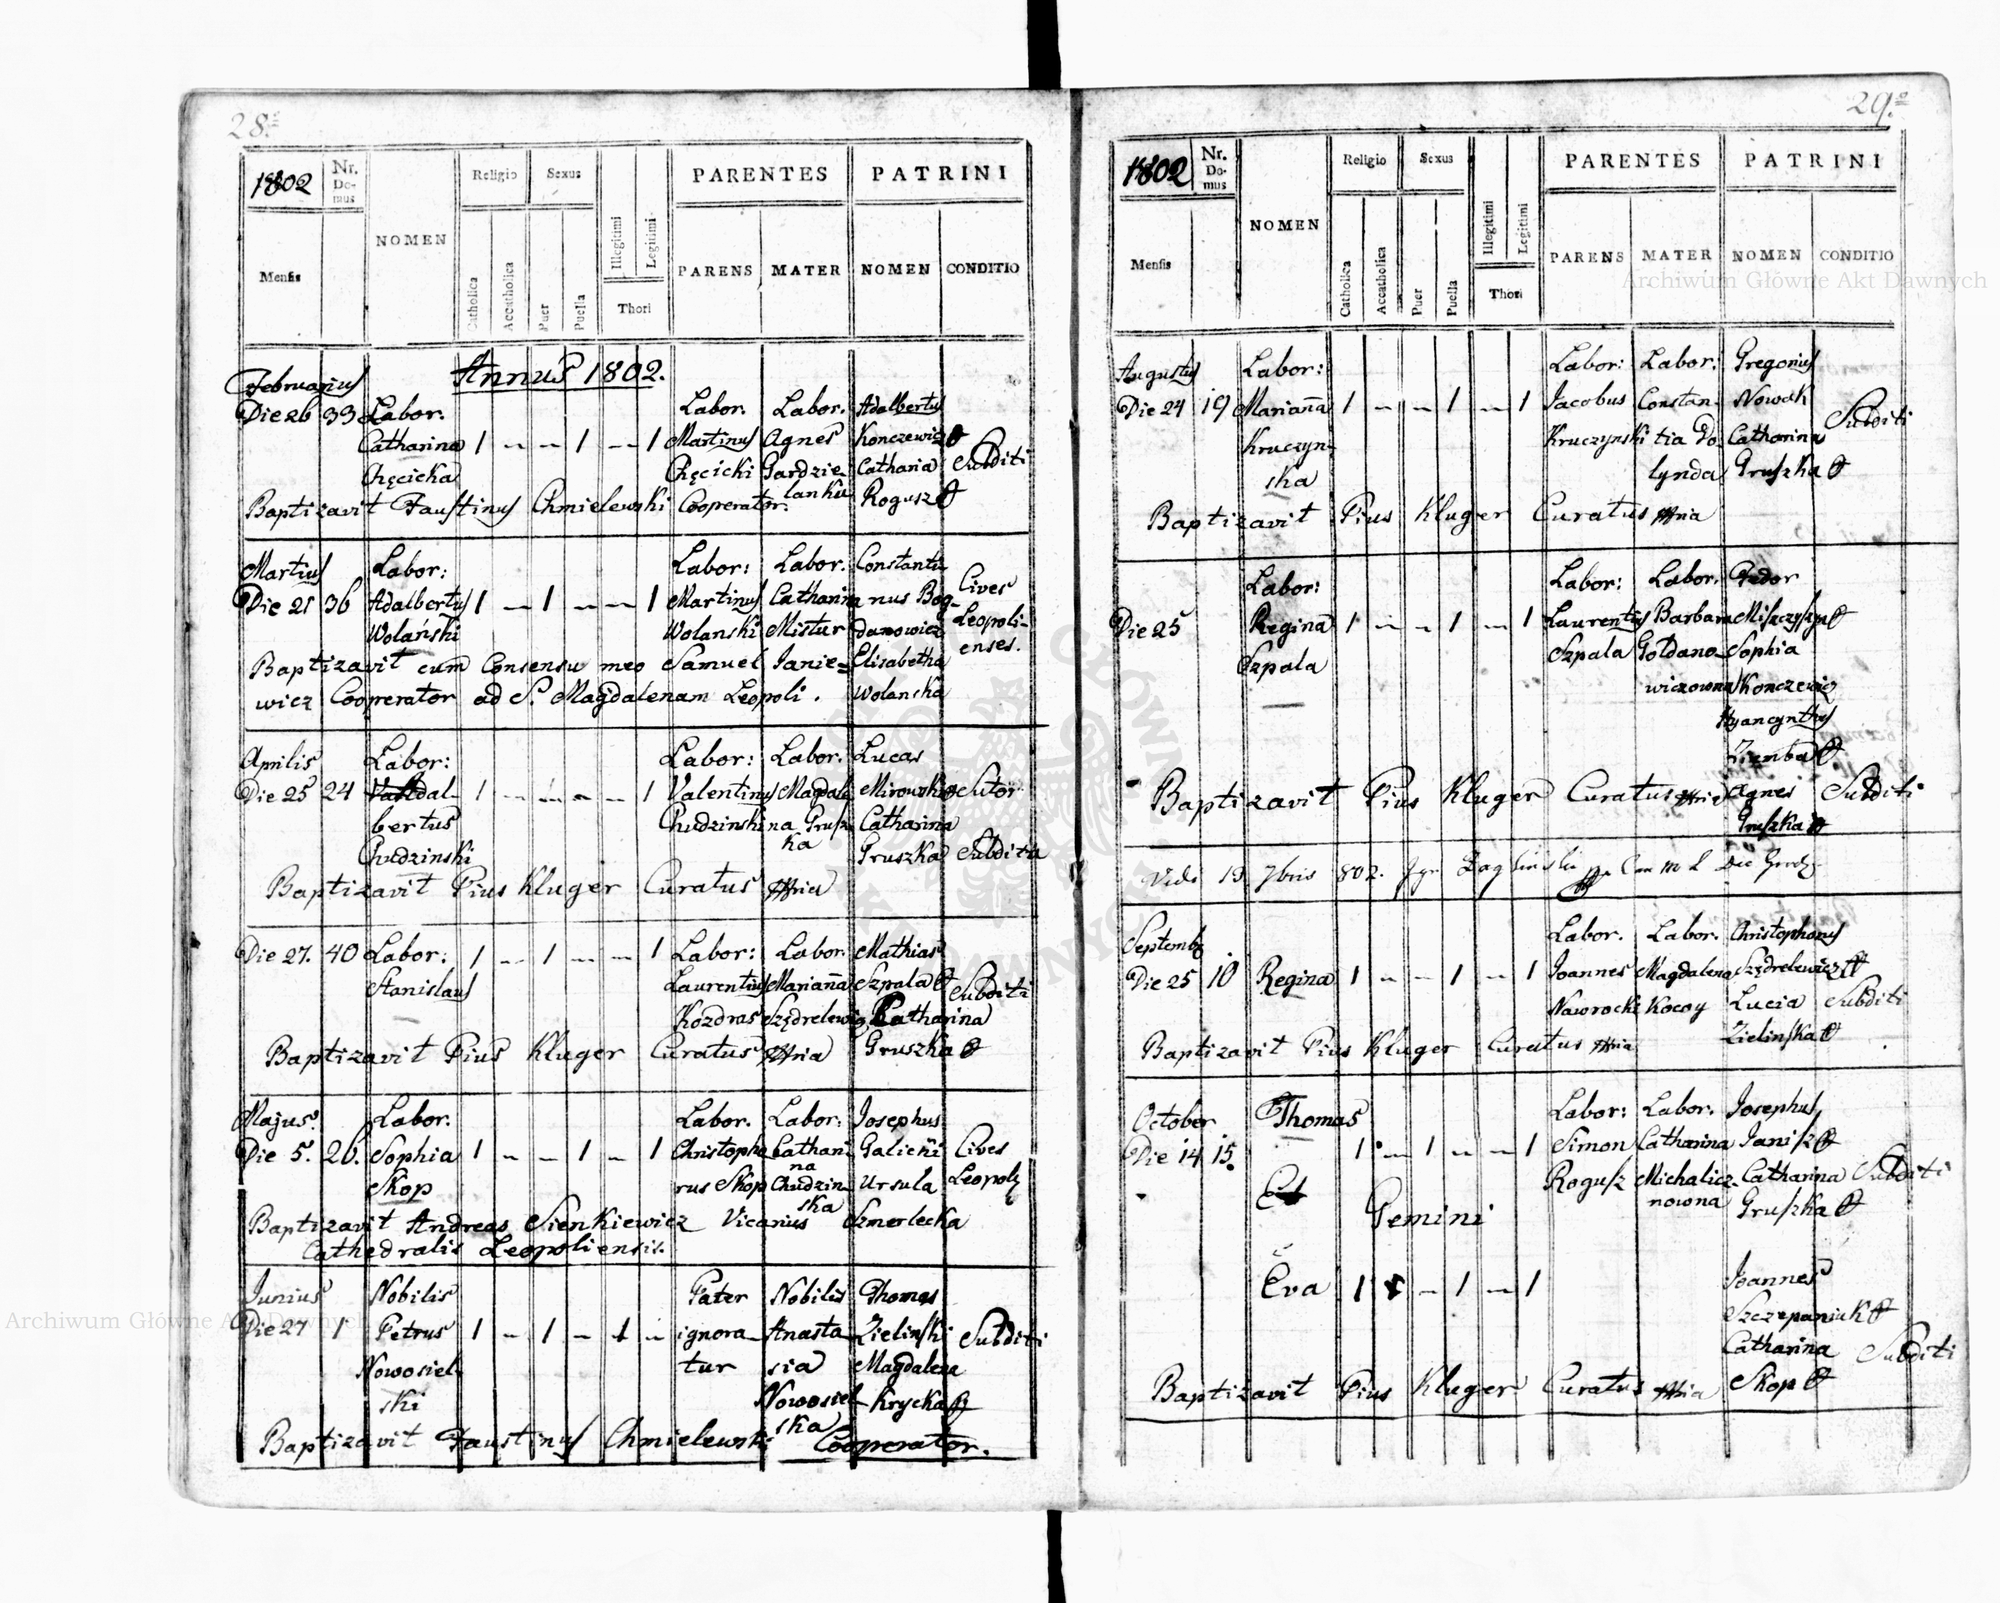 28.
1802
Nr. Domus
NOMEN
Religio
Sexus
PARENTES
PATRINI
Mensis
Catholica
Accatholica
Puer
Puella
Illegitimi
Legitimi
Thori
PARENS
MATER
NOMEN
CONDITIO
Annus 1802.
Februarius
Die 26 33 Labor. Labor. Labor. Adalbertus
Catharina 1 – – 1 – – 1 Martinus Agnes Konczewicz
Chęcicka Chęcicki Gardzie- Catharia Subditi
lanka
Baptizavit Faustinus Chmielewski Cooperator. Rogusz
Martius Labor: Labor: Labor. Constanti
Die 21 36 Adalbertus 1 – 1 – – 1 Martinus Catharina nus Bog- Cives
Wolański Wolanski Mistur danowicz Leopoli-
enses.
Baptizavit cum Consensu meo Samuel Janie= Elisabetha
wicz Cooperator ad S. Magdalenam Leopoli. Wolanska
Aprilis Labor: Labor: Labor. Lucas
Die 25 24 dal- 1 – – – 1 Valentinus Magdale Mirowski Sutor
bertus Chudzinski na Grusz- Catharina
Chudzinski ka Gruszka Subdita
Baptizavit Pius Kluger Curatus
Die 27. 40 Labor: 1 – 1 – – 1 Labor: Labor Mathias
Stanislaus Laurentius Marianna Szpala Subditi
Kozdras Szędrelewicz Catharina
Baptizavit Pius Kluger Curatus Gruszka
Majus. Labor. Labor. Labor: Josephus
Die 5. 20. Sophia 1 – – 1 – 1 Christopho Cathari Galicki Cives
Skop rus Skop na Chudzin- Ursula Leopol
ska
Baptizavit Andreas Sienkiewicz Vicarius Szmerlecka
Cathedralis Leopoliensis.
Junius Nobilis Pater Nobilis Thomas
Die 27 1 Petrus 1 – 1 – 1 – ignora- Anasta- Zielinski Subditi
Nowosiel- tur sia Magdalena
ski Nowosiel- Krycka
ska
Baptizavit Faustinus Chmielewski Cooperator.
29.
1802
Nr. Domus
NOMEN
Religio
Sexus
PARENTES
PATRINI
Mensis
Catholica
Accatholica
Puer
Puella
Illegitimi
Legitimi
Thori
PARENS
MATER
NOMEN
CONDITIO
Augustus Labor: Labor: Labor: Gregorius
Die 24 19 Marianna 1 – – 1 – 1 Jacobus Constan- Nowak Subditi
Kruczyn- Kruczynski tia Go Catharina
ska lynda Gruszka
Baptizavit Pius Kluger Curatus
Labor: Labor: Labor.
Die 25 Regina 1 – – 1 – 1 Laurentius Barbara
Szpala Szpala Sophia
wiczowna Konczewicz
Hyancynthus
Ziemba
Baptizavit Pius Kluger Curatus Agnes Subditi
Gruszka
Vidi 13 7bris 802.
Septemb Labor. Labor. Christophorus
Die 25 10 Regina 1 – – 1 – 1 Joannes Magdalena Szędrelewicz
Nawrocki Kocoy Lucia Subditi
Baptizavit Pius Kluger Curatus Zielinska
October Thomas Labor: Labor. Josephus
Die 14 15. 1 – 1 – – 1 Simon Catharina Janisz
Et Rogusz Michalicz- Catharina Subditi
Gemini nowna Gruszka
Eva 1 – 1 – 1 Joannes
Szczepaniuk
Catharina Subditi
Baptizavit Pius Kluger Curatus Skop
Archiwum Główne Akt Dawnych
Archiwum Główne Akt Dawnych